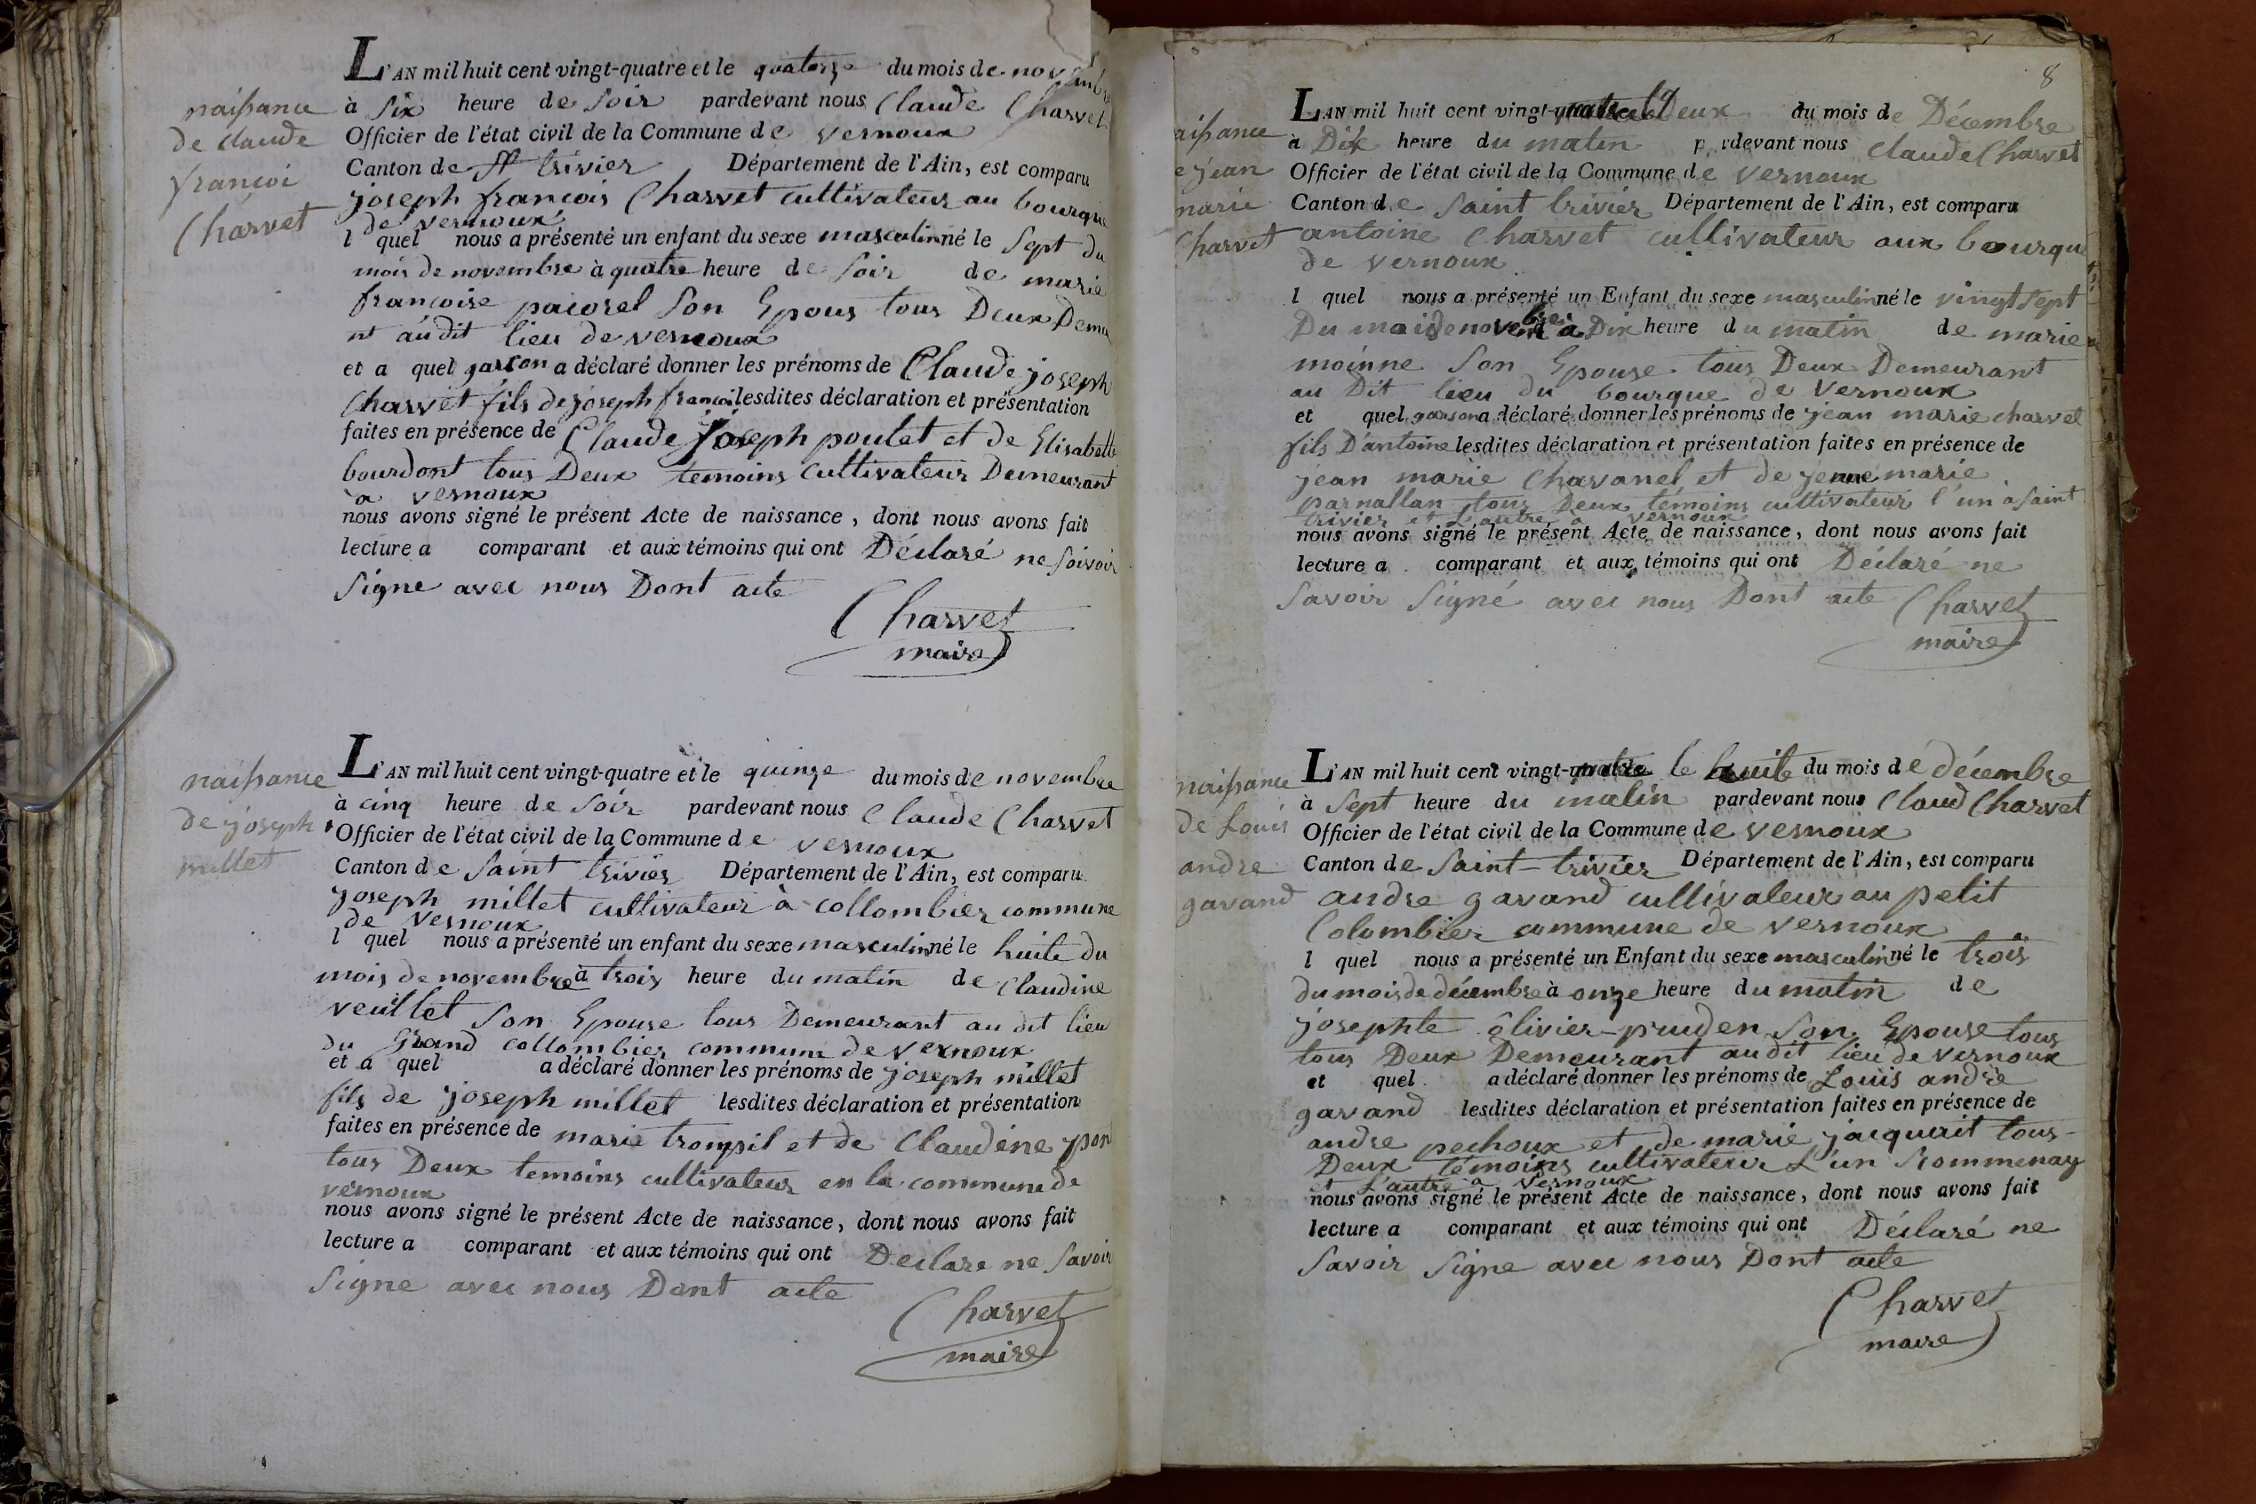 naissance
de claude
françoi
Charvet
L'AN mil huit cent vingt-quatre et le quatorze du mois de novembre
à six heure de soir pardevant nous Claude Charvet
Officier de l'état civil de la Commune de vernoux
Canton de st trivier Département de l'Ain, est comparu
joseph françois Charvet cultivateur au bourque
de vernoux
l quel nous a présenté un enfant du sexe masculin né le sept du
mois de novembre à quatre heure de soir de marie
françoise pacorel son Epous tous Deux Demeu
nt audit lieu de vernoux
et a quel garcon a déclaré donner les prénoms de Claude joseph
Charvet fils de joseph françoi lesdites déclaration et présentation
faites en présence de Claude joseph poulet et de Elisabette
bourdont tous Deux temoins cultivateur Demeurant
a vernoux
nous avons signé le présent Acte de naissance, dont nous avons fait
lecture a comparant et aux témoins qui ont Déclaré ne soivoir
signe avec nous Dont acte
Charvet
maire
naissance
de joseph
millet
L'AN mil huit cent vingt-quatre et le quinze du mois de novembre
à cinq heure de soir pardevant nous Claude Charvet
Officier de l'état civil de la Commune de vernoux
Canton de saint trivier Département de l'Ain, est comparu
joseph millet cultivateur à collombier commune
de vernoux
l quel nous a présenté un enfant du sexe masculin né le huite du
mois de novembre à trois heure du matin de Claudine
veuillet son Epouse tous Demeurant au dit lieu
du Grand collombier commune de vernoux
et a quel a déclaré donner les prénoms de joseph millet
fils de joseph millet lesdites déclaration et présentation
faites en présence de marie trompil et de Claudine pon
tous Deux temoins cultivateur en la commune de
vernoux
nous avons signé le présent Acte de naissance, dont nous avons fait
lecture a comparant et aux témoins qui ont Declare ne savoir
signe avec nous Dont acte
Charvet
maire
8
aissance
e jean
marie
Charvet
L'AN mil huit cent vingt-quatre le Deux du mois de Décembre
à Dix heure du matin p rdevant nous Claude Charvet
Officier de l'état civil de la Commune de vernoux
Canton de saint trivier Département de l'Ain, est comparu
antoine Charvet cultivateur aux bourque
de vernoux
l quel nous a présenté un Enfant du sexe masculin né le vingt sept
Du mois de novembre à Dix heure du matin de marie
moinne son Epouse tous Deux Demeurant
au Dit lieu du bourque de vernoux
et quel garson a déclaré donner les prénoms de jean marie charvet
fils D'antoine lesdites déclaration et présentation faites en présence de
jean marie Chavanel et de jenne marie
parnallan tous Deux témoins cultivateur l'un à saint
trivier et L'autre a vernoux
nous avons signé le présent Acte de naissance, dont nous avons fait
lecture a comparant et aux témoins qui ont Déclaré ne
savoir signé avec nous Dont acte
Charvet
maire
naissance
de Louis
andre
gavand
L'AN mil huit cent vingt-quatre le huite du mois de décembre
à sept heure du matin pardevant nous Claud Charvet
Officier de l'état civil de la Commune de vernoux
Canton de saint-trivier Département de l'Ain, est comparu
andre gavand cultivateur au petit
Colombier commune de vernoux
l quel nous a présenté un Enfant du sexe masculin né le trois
du mois de décembre à onze heure du matin de
josephte ôlivier-pruden son Epouse tous
tous Deux Demeurant audit lieu de vernoux
et quel a déclaré donner les prénoms de Louis andre
gavand lesdites déclaration et présentation faites en présence de
andre pechoux et de marie jacquait tous-
Deux témoins cultivateur L'un Rommenay
et L'autre a vernoux
nous avons signé le présent Acte de naissance, dont nous avons fait
lecture a comparant et aux témoins qui ont Déclaré ne
savoir signe avec nous Dont acte
Charvet
maire